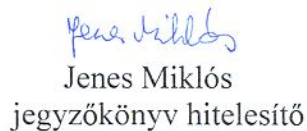 Jenes Miklós
Jenes Miklós
jegyzőkönyv hitelesítő